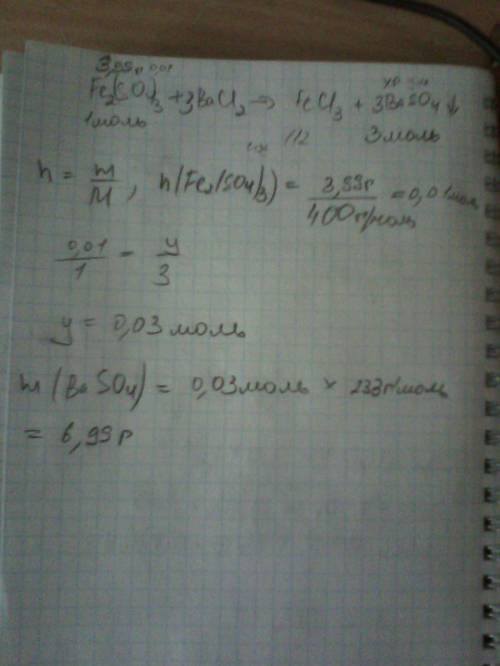 3,99г 0,01
Fe₂(SO₄)₃ + 3BaCl₂ → FeCl₃ + 3BaSO₄↓
1моль 3 моль
n = m/M, n(Fe₂(SO₄)₃) = 3,99г/400г/моль = 0,01моль
0,01/1 = y/3
y = 0,03 моль
m(BaSO₄) = 0,03моль × 233г/моль
= 6,99г